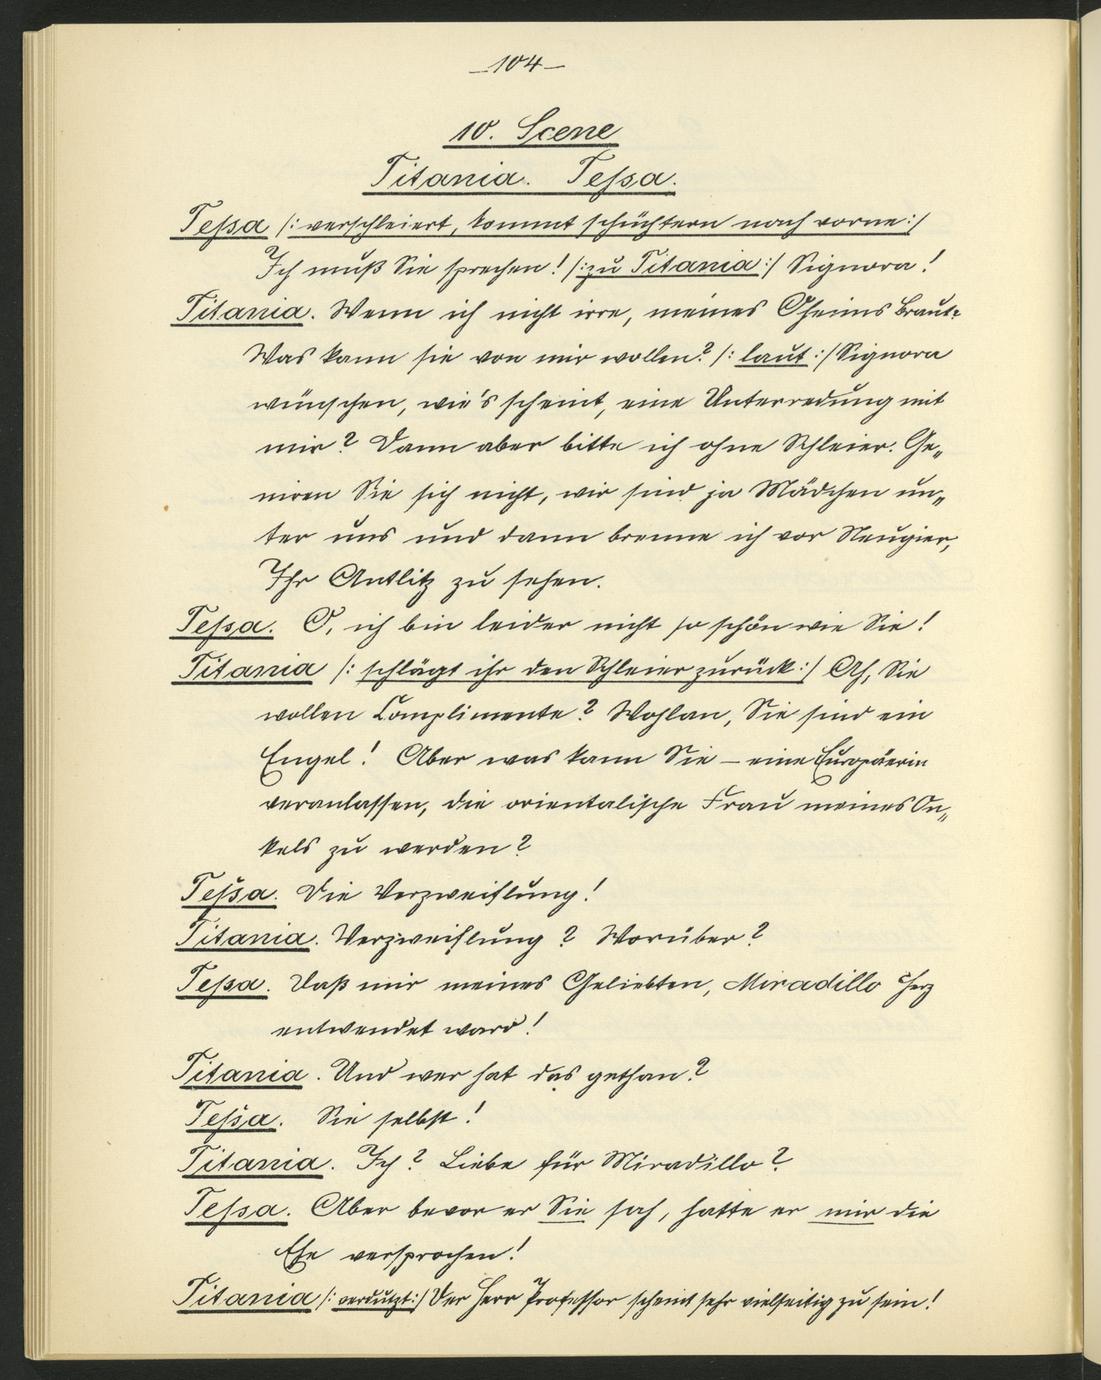 –104–
10. Scene
Titania. Teßa.
Teßa /: verschleiert, kommt schüchtern nach vorne :/
Ich muß Sie sprechen! /: zu Titania :/ Signora!
Titania. Wenn ich nicht irre, meines Oheims Braut.
Was kann sie von mir wollen? /: laut :/ Signora
wünschen, wie's scheint, eine Unterredung mit
mir? Dann aber bitte ich ohne Schleier. Ge„
niren Sie sich nicht, wir sind ja Mädchen un„
ter uns und dann brenne ich vor Neugier,
Ihr Antlitz zu sehen.
Teßa. O, ich bin leider nicht so schön wie Sie!
Titania /: schlägt ihr den Schleier zurück :/ Ah, Sie
wollen Complimente? Wohlan, Sie sind ein
Engel! Aber was kann Sie – eine Europäerin
veranlassen, die orientalische Frau meines On„
kels zu werden?
Teßa. Die Verzweiflung!
Titania. Verzweiflung? Worüber?
Teßa. Daß mir meines Geliebten, Miradillo Herz
entwendet ward!
Titania. Und wer hat das gethan?
Teßa. Sie selbst!
Titania. Ich? Liebe für Miradillo?
Teßa. Aber bevor er Sie sah, hatte er mir die
Ehe versprochen!
Titania /: verdutzt :/ Der Herr Professor scheint sehr vielseitig zu sein!